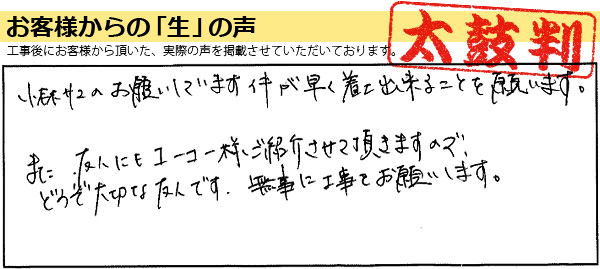 お客様からの「生」の声
工事後にお客様から頂いた、実際の声を掲載させていただいております。
太鼓判
小林サンのお願いしています件が早く着工出来ることを願います。
また友人にもエーコー様ご紹介させて頂きますので、
どうぞ大切な友人です。無事に工事をお願いします。